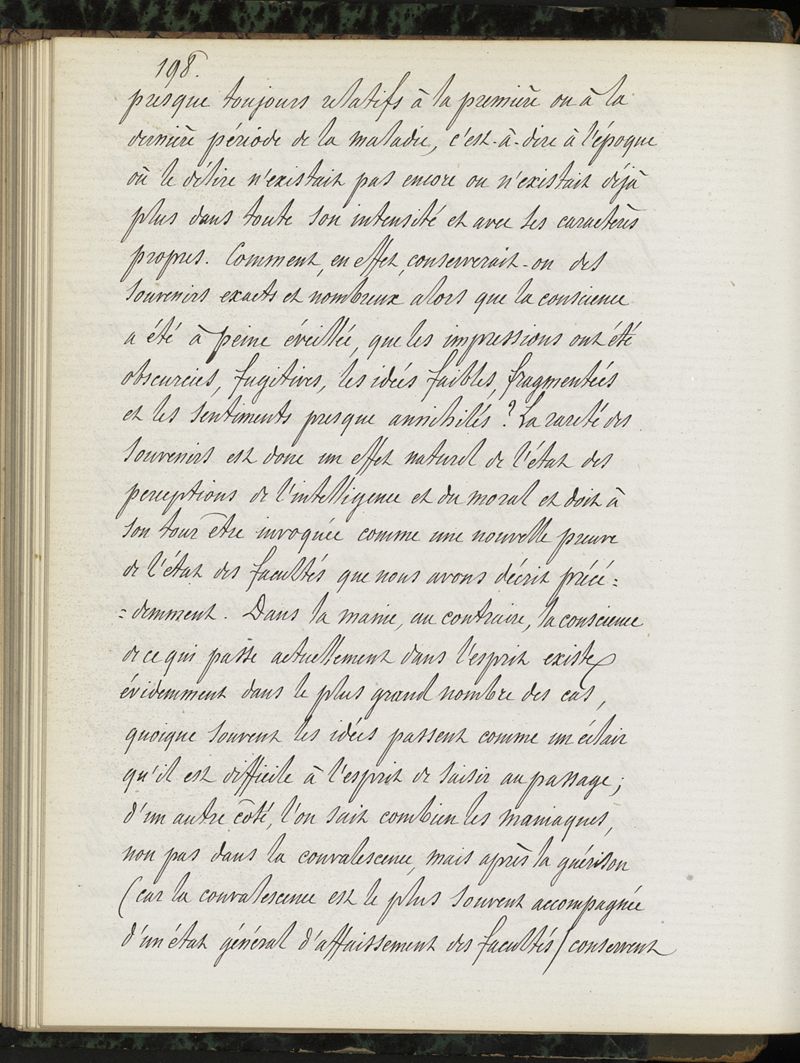 198.
presque toujours relatifs à la première ou à la
dernière période de la maladie, c'est-à-dire à l'époque
où le délire n'existait pas encore ou n'existait déjà
plus dans toute son intensité et avec ses caractères
propres. Comment, en effet, conserverait-on des
souvenirs exacts et nombreux alors que la conscience
a été à peine éveillée, que les impressions ont été
obscurcies, fugitives, les idées faibles, fragmentées
et les sentiments presque annihilés ? La rareté des
souvenirs est donc un effet naturel de l'état des
perceptions de l'intelligence et du moral et doit à
son tour être invoquée comme une nouvelle preuve
de l'état des facultés que nous avons décrit précé=
=demment. Dans la manie, au contraire, la conscience
de ce qui passe actuellement dans l'esprit existe
évidemment dans le plus grand nombre des cas,
quoique souvent les idées passent comme un éclair
qu'il est difficile à l'esprit de saisir au passage ;
d'un autre côté, l'on sait combien les maniaques,
non pas dans la convalescence, mais après la guérison
(car la convalescence est le plus souvent accompagnée
d'un état général d'affaissement des facultés) conservent